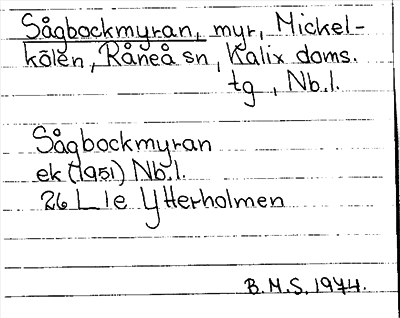 Sågbockmyran, myr, Mickel-
kölen, Råneå sn, Kalix doms.
tg, Nb.l.
Sågbockmyran
ek (1951) Nb.l.
26 L 1e Ytterholmen
B.M.S. 1974.